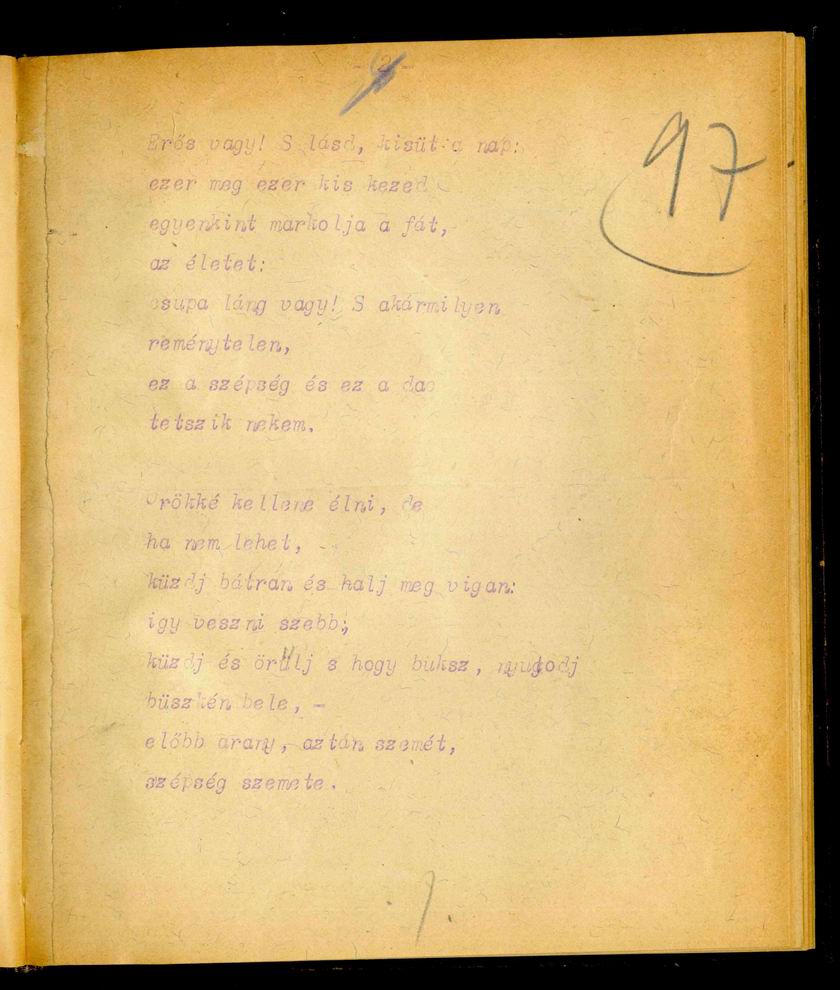 - 2 -
97
Erős vagy! S lásd, kisüt a nap:
ezer meg ezer kis kezed
egyenkint markolja a fát,
az életet:
csupa láng vagy! S akármilyen
reménytelen,
ez a szépség és ez a dac
tetszik nekem.
Örökké kellene élni, de
ha nem lehet,
küzdj bátran és halj meg vigan:
igy veszni szebb;
küzdj és örülj s hogy buksz, nyugodj
büszkén bele, -
előbb arany, aztán szemét,
szépség szemete.